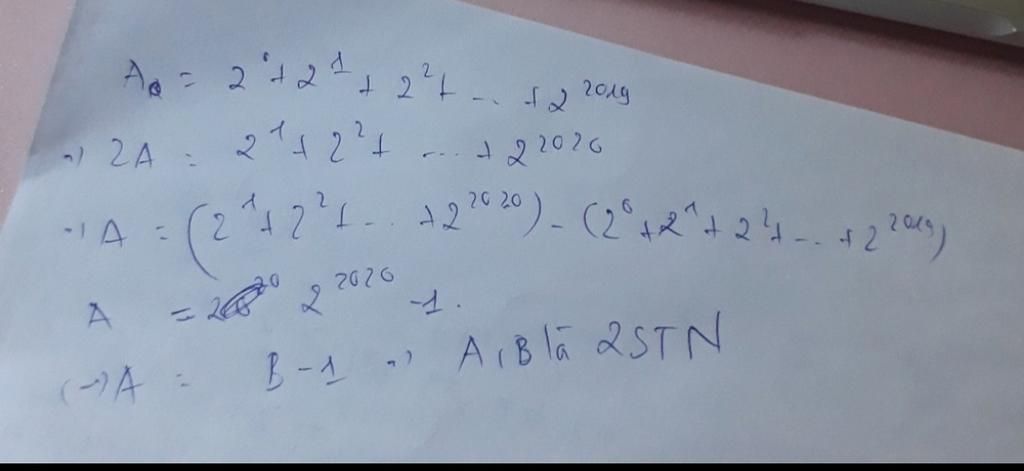 A = 2⁰ + 2¹ + 2² + ... + 2²⁰¹⁹
=> 2A = 2¹ + 2² + ... + 2²⁰²⁰
=> A = (2¹ + 2² + ... + 2²⁰²⁰) - (2⁰ + 2¹ + 2² + ... + 2²⁰¹⁹)
A = 2²⁰²⁰ - 1.
(=) A = B - 1 => A, B là 2STN